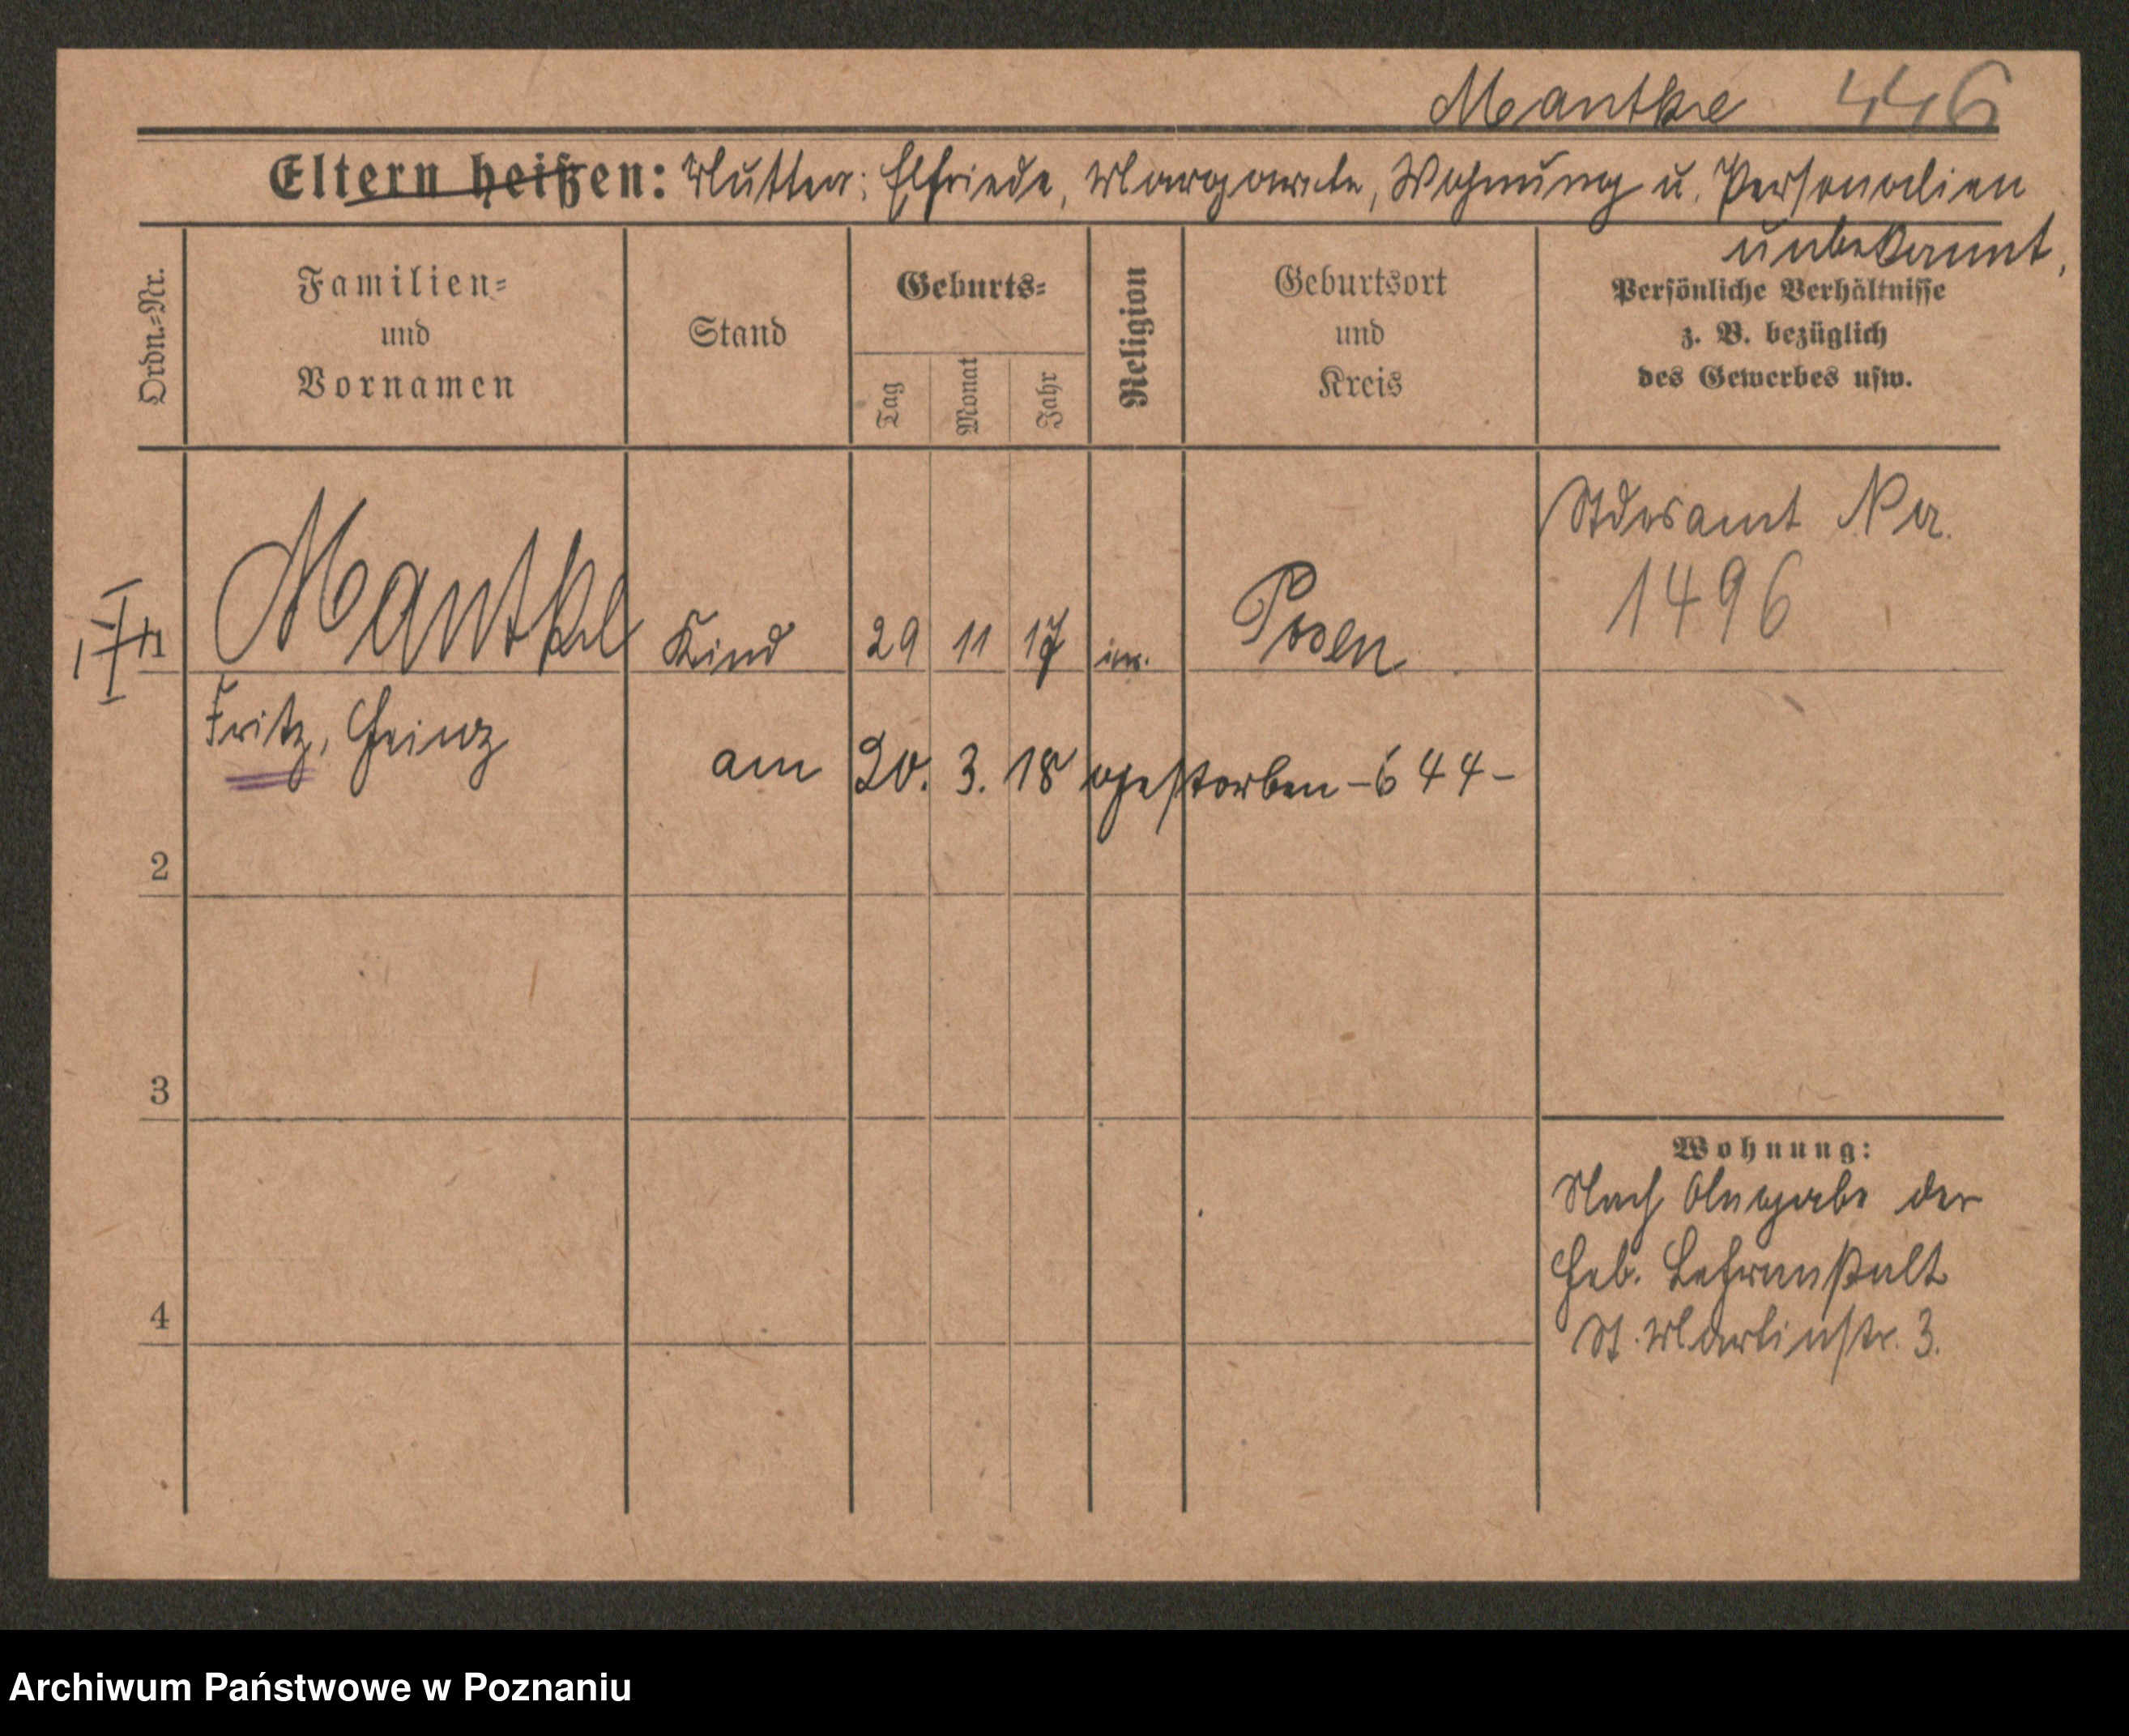 Mantke 446
Eltern heißen: Mutter: Elfriede, Margarete, Wohnung u. Personalien
unbekannt,
Ordn.=Nr.
Familien=
und
Vornamen
Stand
Geburts=
Tag
Monat
Jahr
Religion
Geburtsort
und
Kreis
Persönliche Verhältnisse
z. B. bezüglich
des Gewerbes usw.
Stdesamt Nr.
1496
1 Mantke Kind 29 11 17 Posen
Fritz, Heinz
am 20. 3. 18 gestorben - 644 -
2
3
4
Wohnung:
Nach Angabe der
Heb. Lehranstalt
St. Martinstr. 3.
Archiwum Państwowe w Poznaniu